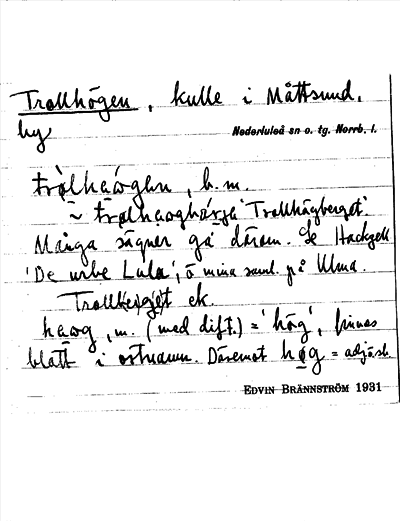 Trollhögen, kulle i Måttsund,
by Nederluleå sn o. tg. Norrb. l.
trolhaógen, b. m.
~ trolhaoghórja 'Trollhögberget'.
Många sägner gå därom. Se Hackzell
'De urbe Lula', o mina saml. på Ulma.
Trollberget ek.
haog, m. (med dift.) = 'hög', finnes
blott i ortnamn. Däremot høg = adjäst.
EDVIN BRÄNNSTRÖM 1931